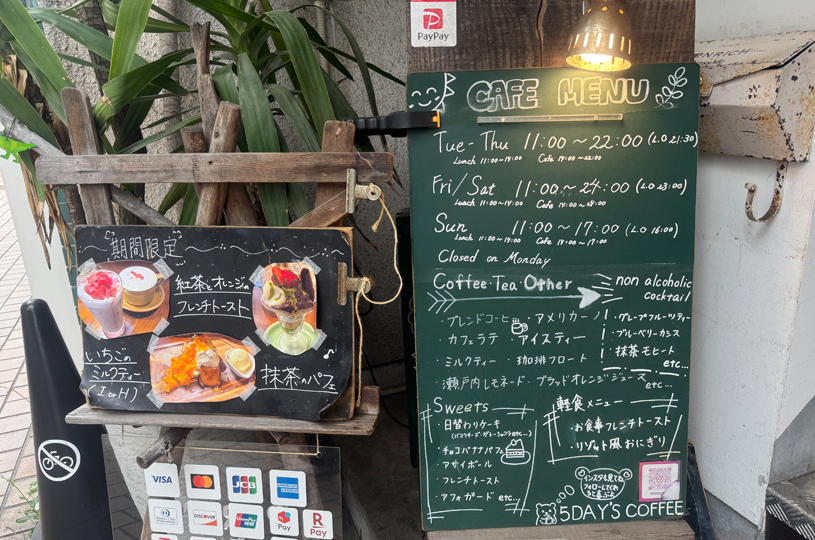 PayPay
CAFE MENU
Tue-Thu 11:00〜22:00 (L.O 21:30)
Lunch 11:00〜14:00 Cafe 14:00〜22:00
Fri/Sat 11:00〜24:00 (L.O 23:00)
Lunch 11:00〜14:00 Cafe 14:00〜24:00
Sun 11:00〜17:00 (L.O 16:00)
Lunch 11:00〜14:00 Cafe 14:00〜17:00
Closed on Monday
Coffee・Tea・Other
・ブレンドコーヒー ・アメリカーノ
・カフェラテ ・アイスティー
・ミルクティー ・珈琲フロート
・瀬戸内レモネード ・ブラッドオレンジジュース
etc...
non alcoholic
cocktail
・グレープフルーツティー
・ブルーベリーカシス
・抹茶モヒート
etc...
Sweets
・日替わりケーキ
(バスクチーズ・ガトーショコラetc...)
・チョコバナナパフェ
・アサイボール
・フレンチトースト
・アフォガード etc...
軽食メニュー
・お食事フレンチトースト
・リゾット風おにぎり
インスタも見てね
フォローしてくれ
ると喜ぶよ
5DAY'S COFFEE
期間限定
紅茶とオレンジの
フレンチトースト
いちごの
ミルクティー
(I or H)
抹茶のパフェ
VISA
mastercard
JCB
AMERICAN EXPRESS
Diners Club
DISCOVER
UnionPay
Pay
R Pay